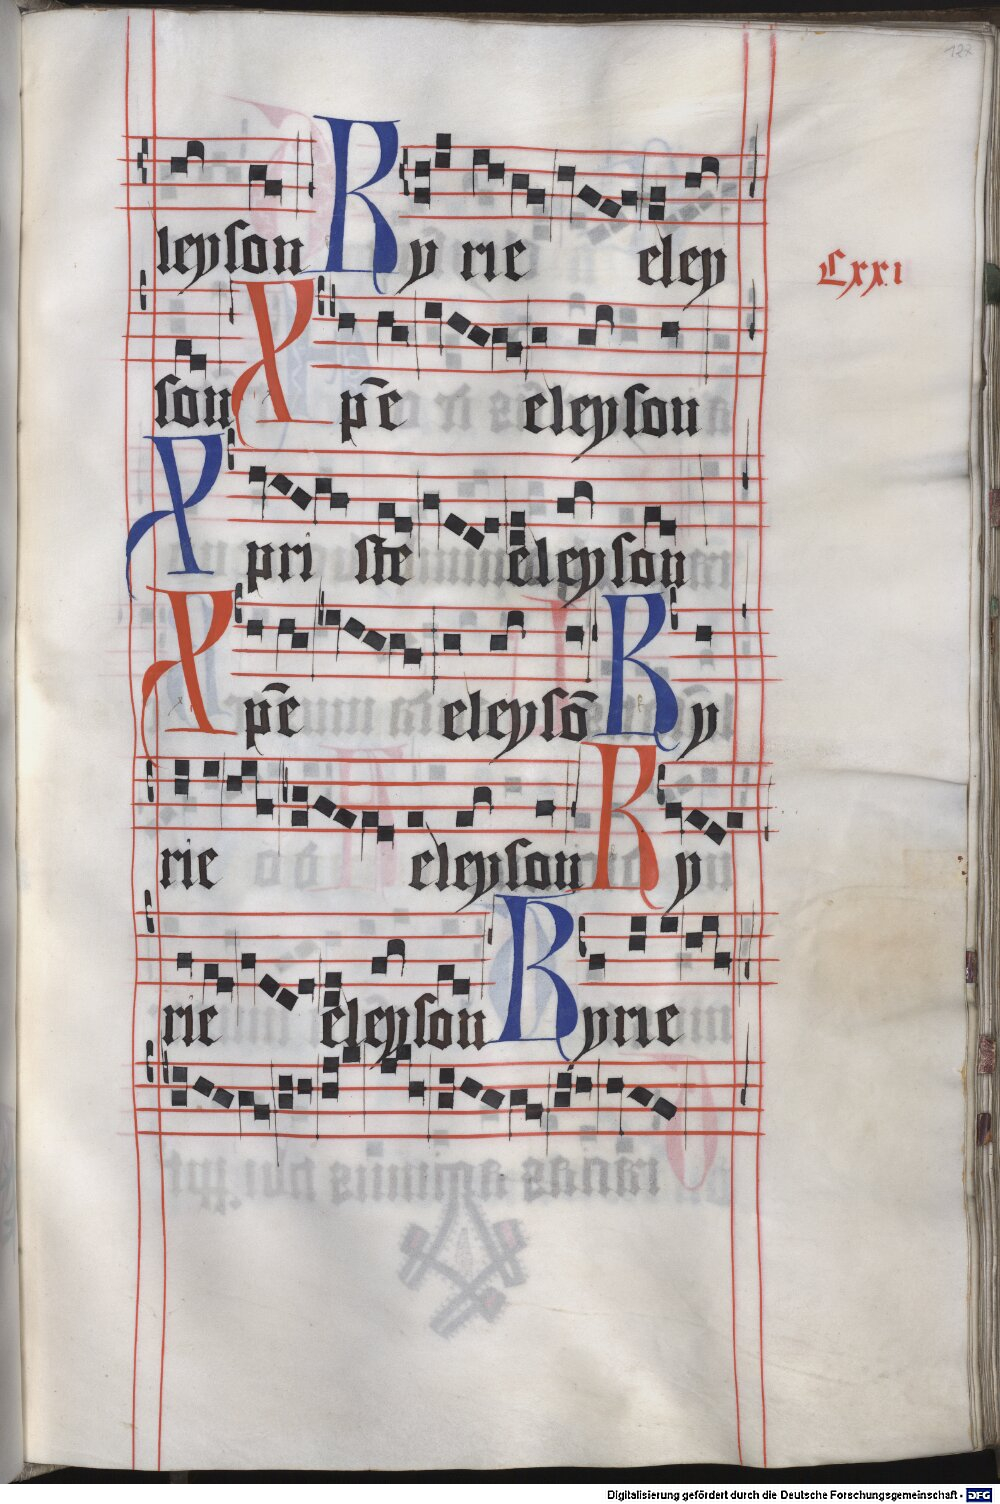 127
leyson Ky rie eley
Cxxı
son Xpē eleyson
Xpri ste eleyson
Xpē eleysō Ky
rie eleyson Ky
rie eleyson Kyrie
Digitalisierung gefördert durch die Deutsche Forschungsgemeinschaft - DFG